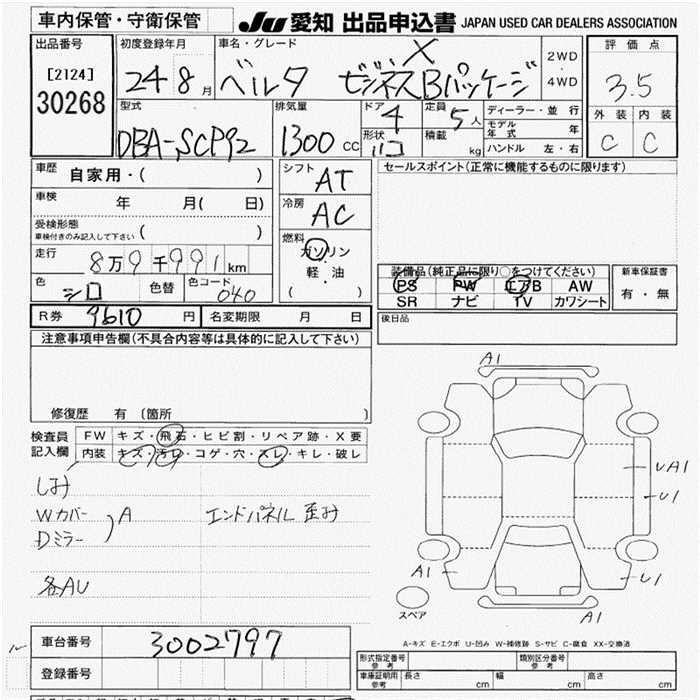 車内保管・守衛保管
JU 愛知 出品申込書 JAPAN USED CAR DEALERS ASSOCIATION
出品番号
[2124]
30268
初度登録年月
24 8月
車名・グレード
ベルタ X ビジネスBパッケージ
2WD
・
4WD
評価点
3.5
外装 内装
C C
型式
DBA-SCP92
排気量
1300 cc
ドア 4
形状 ハコ
定員 5人
積載 kg
ディーラー・並行
モデル年式 年
ハンドル 左・右
車歴 自家用・( )
車検 年 月( 日)
受検形態
車検付きのみ記入して下さい ( )
走行 8万9千991km
色 シロ 色替 色コード 040
シフト AT
冷房 AC
燃料
ガソリン
・
軽・油
・
( )
セールスポイント(正常に機能するものに限ります)
装備品(純正品に限り○をつけてください)
PS PW エアB AW
SR ナビ TV カワシート
新車保証書
有・無
R券 9610 円 名変期限 月 日
後日品
注意事項申告欄(不具合内容等は具体的に記入して下さい)
修復歴 有 [箇所 ]
検査員
記入欄
FW キズ・飛石・ヒビ割・リペア跡・X要
内装 キズ・汚レ・コゲ・穴・スレ・キレ・破レ
しみ
Wカバー
Dミラー
A
エンドパネル 歪み
各AU
A1
UA1
U1
A1
U1
A1
スペア
A-キズ E-エクボ U-凹み W-補修跡 S-サビ C-腐食 XX-交換済
車台番号 3002797
登録番号
形式指定番号
参考
類別区分番号
参考
車庫証明用
参考
長さ cm 幅 cm 高さ cm